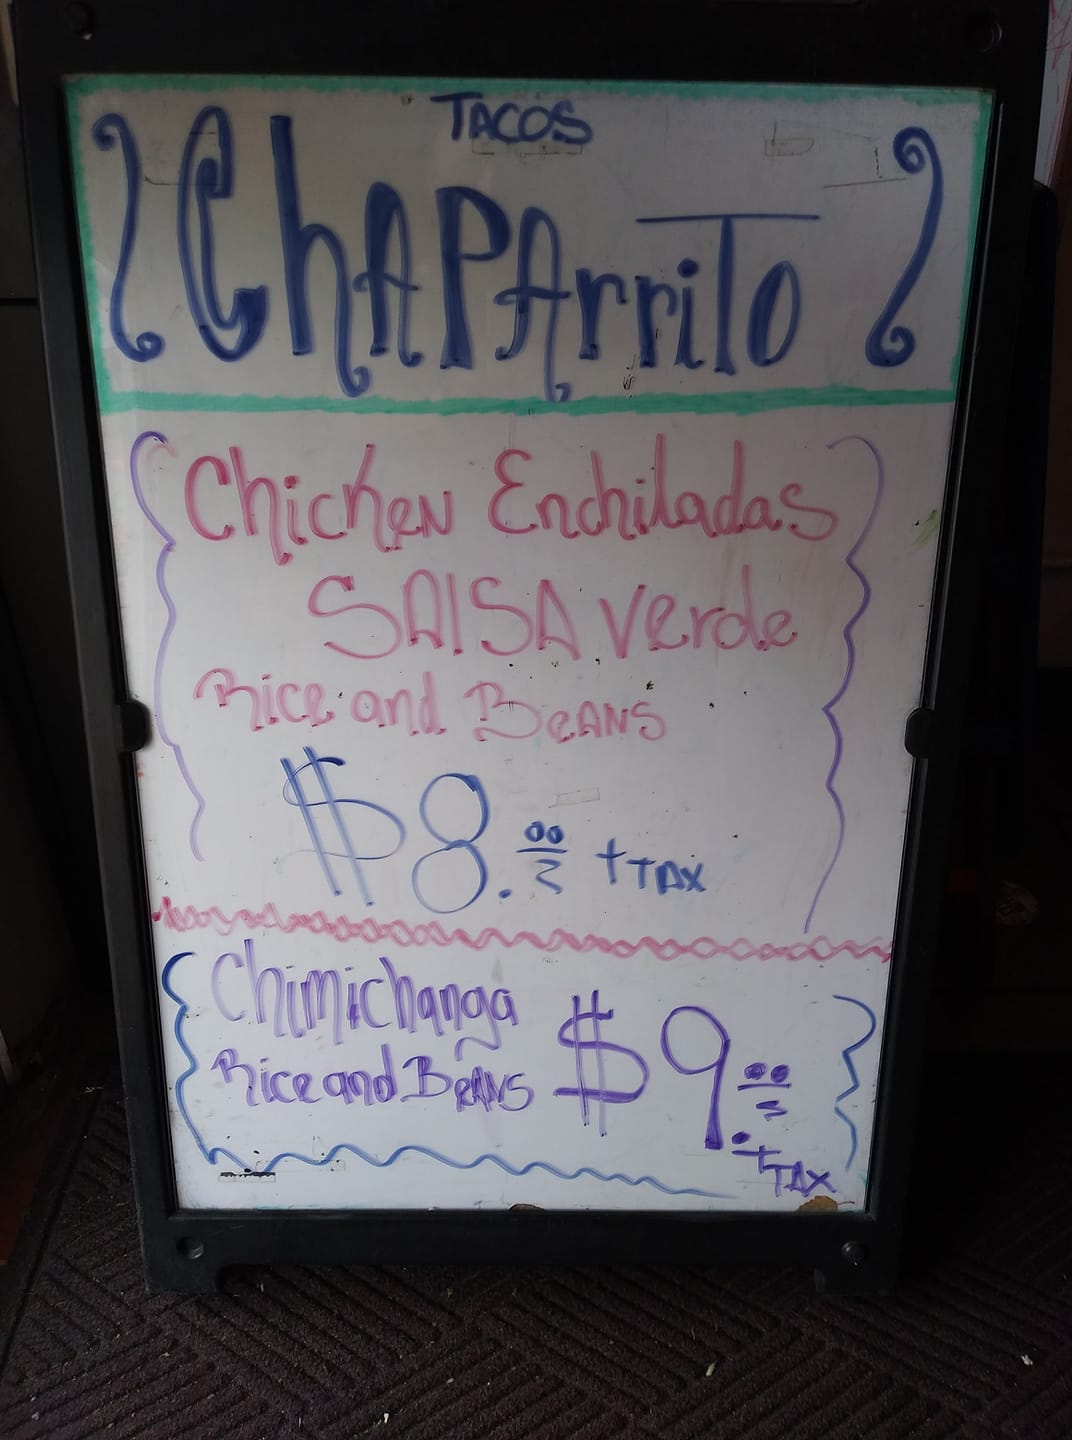 TACOS
ChAPArriTo
Chicken Enchiladas
SAlSA Verde
Rice and BeANS
$8.00 + TAX
Chimichanga
Rice and BeANS $9.00
+ TAX